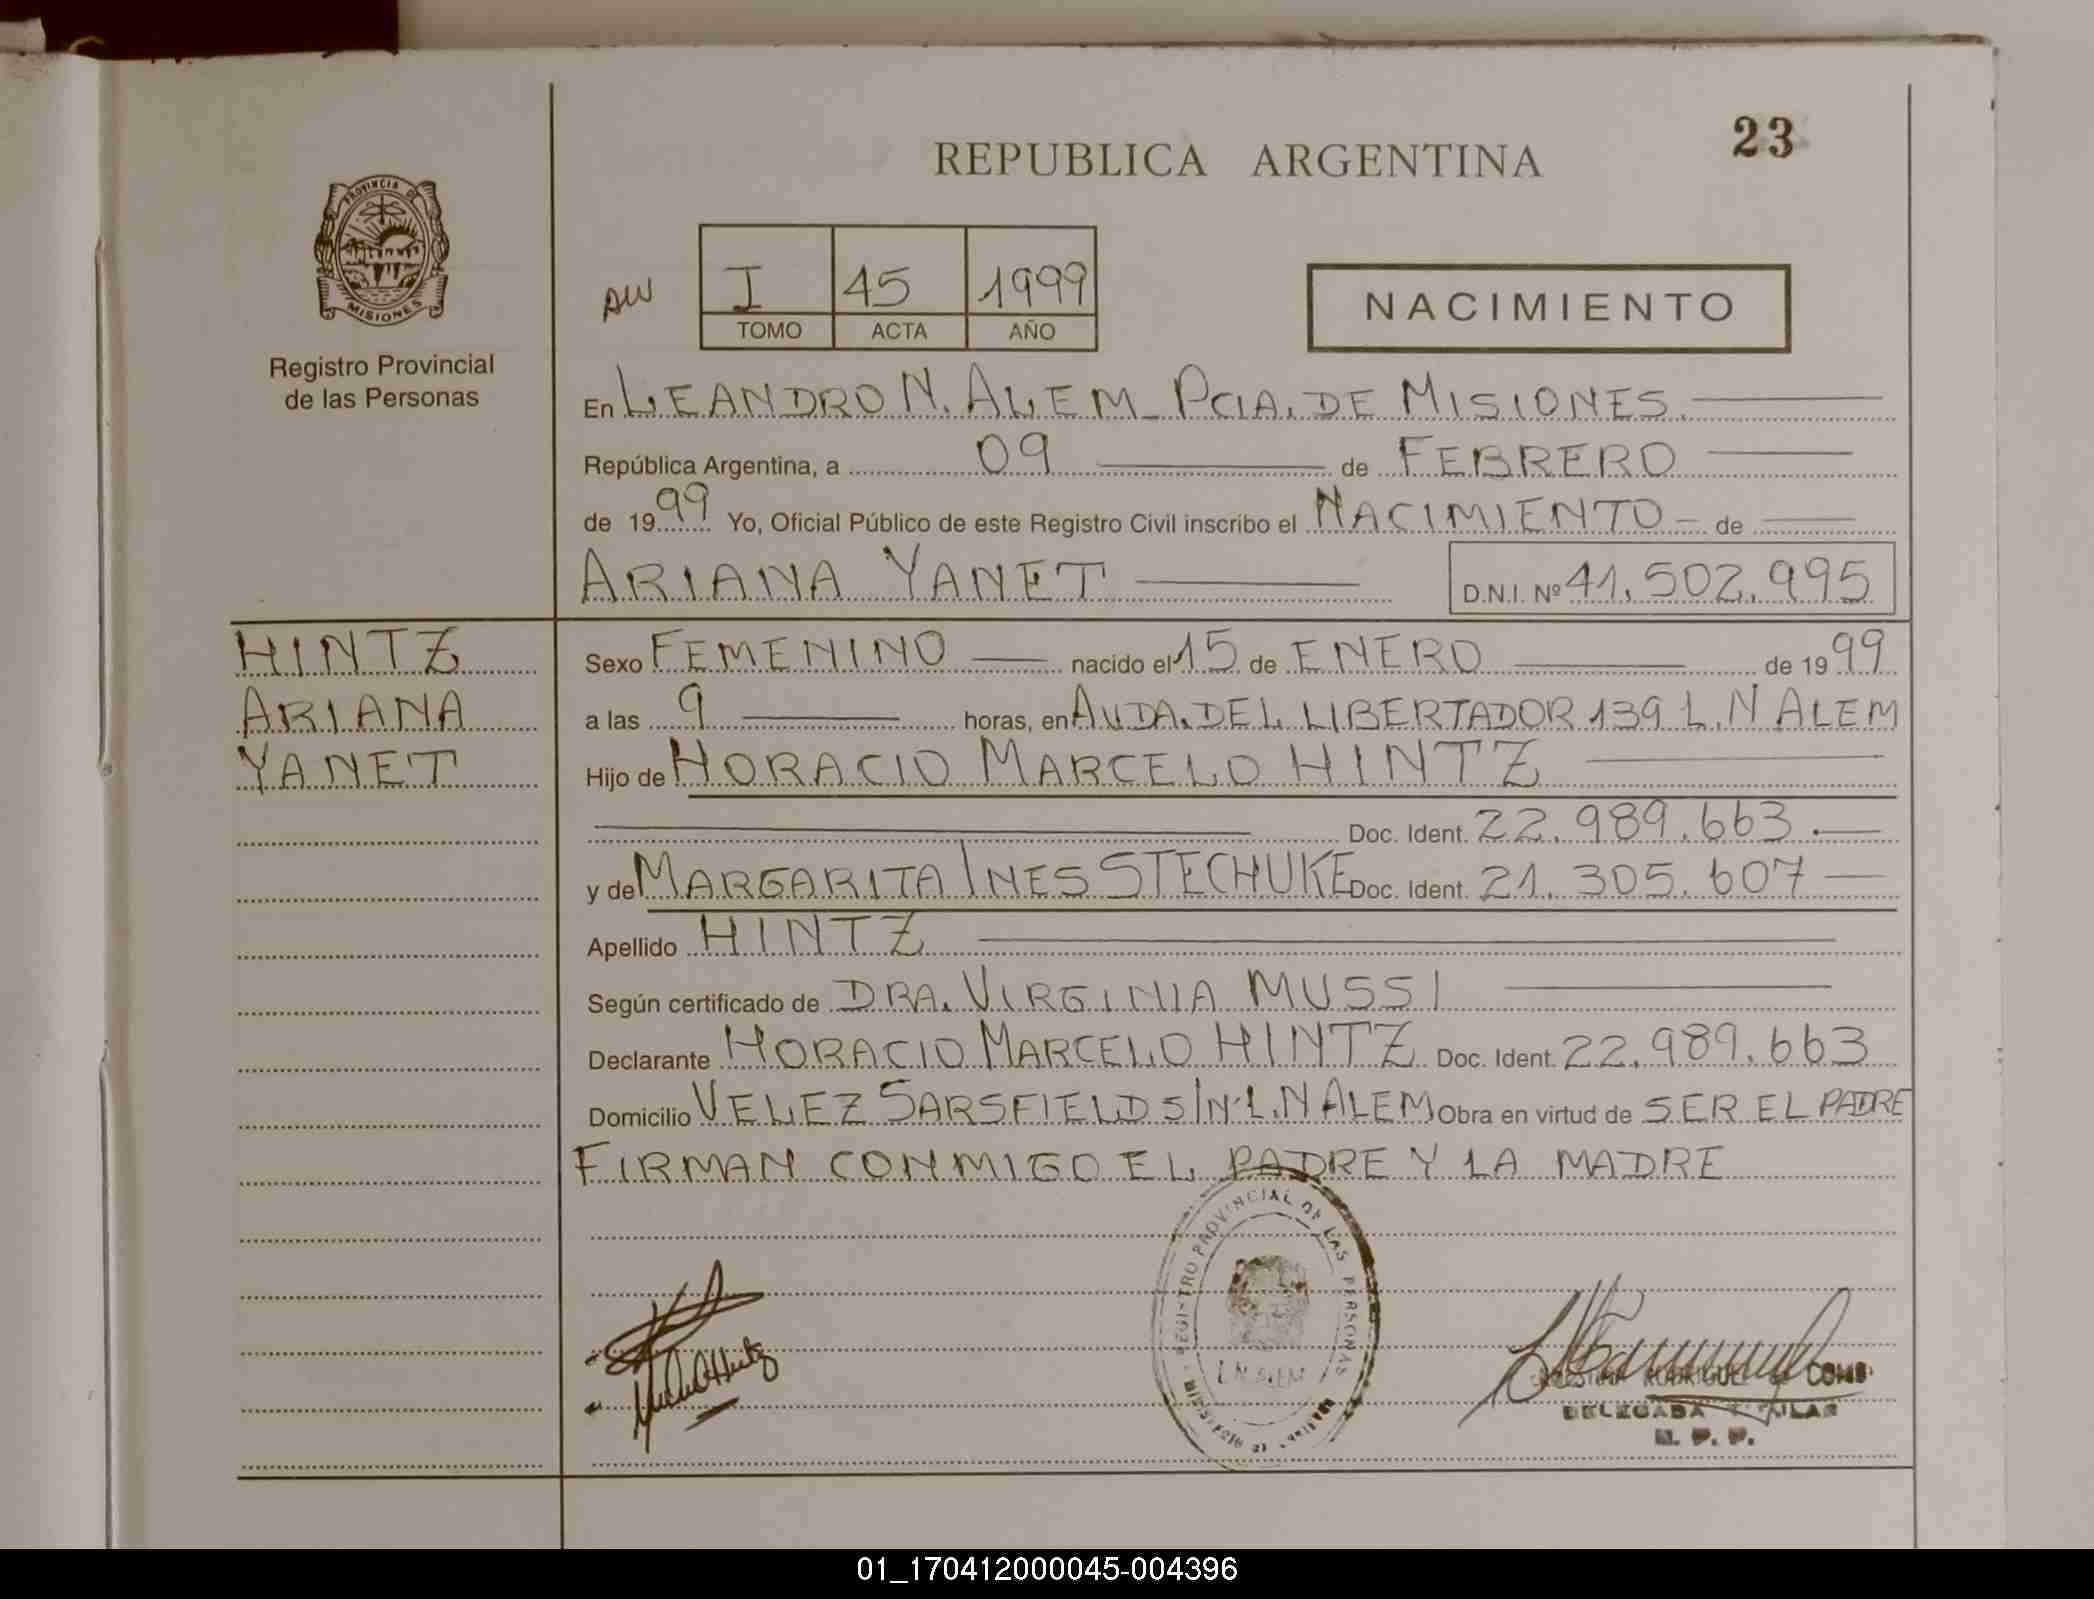 23
REPUBLICA ARGENTINA
PROVINCIA DE
MISIONES
Registro Provincial
de las Personas
I 45 1999
TOMO ACTA AÑO
NACIMIENTO
En LEANDRO N. ALEM - PCIA. DE MISIONES
República Argentina, a 09 de FEBRERO
de 1999 Yo, Oficial Público de este Registro Civil inscribo el NACIMIENTO - de
ARIANA YANET D.N.I. Nº 41.502.995
HINTZ
ARIANA
YANET
Sexo FEMENINO nacido el 15 de ENERO de 1999
a las 9 horas, en AVDA. DEL LIBERTADOR 139 L.N ALEM
Hijo de HORACIO MARCELO HINTZ
Doc. Ident. 22.989.663.
y de MARGARITA INES STECHUKE Doc. Ident. 21.305.607
Apellido HINTZ
Según certificado de DRA. VIRGINIA MUSSI
Declarante HORACIO MARCELO HINTZ Doc. Ident. 22.989.663
Domicilio VELEZ SARSFIELD S/N-L.N ALEM Obra en virtud de SER EL PADRE
FIRMAN CONMIGO EL PADRE Y LA MADRE
REGISTRO PROVINCIAL DE LAS PERSONAS
L.N. ALEM
RODRIGUEZ de
DELEGADA TITULAR
R. P. P.
01_170412000045-004396